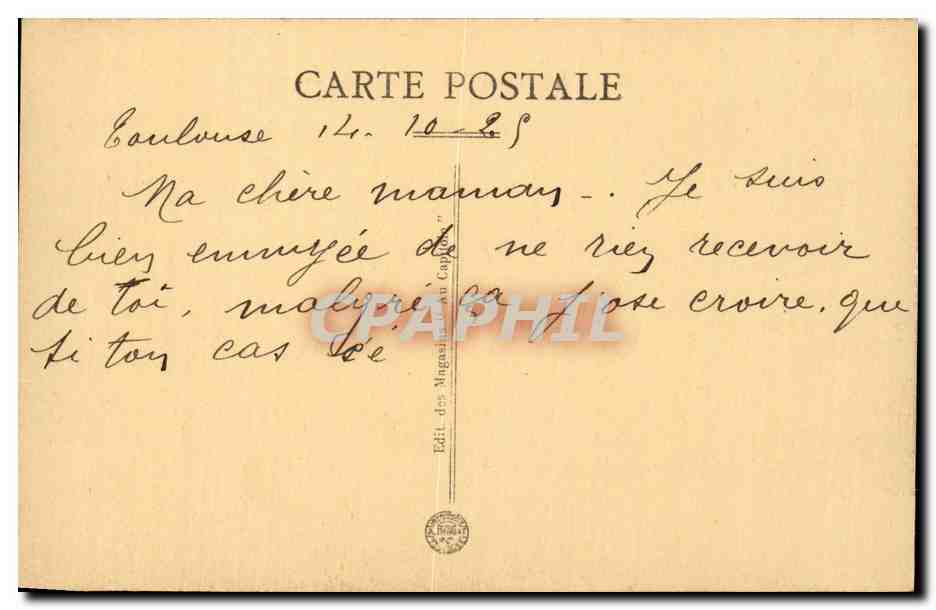 CARTE POSTALE
Toulouse 14. 10-25
Ma chère maman -. Je suis
bien ennuyée de ne rien recevoir
de toi, malgré ça j'ose croire, que
si ton cas
Edit. des Magasins "Au Capitole"
CPAPHIL